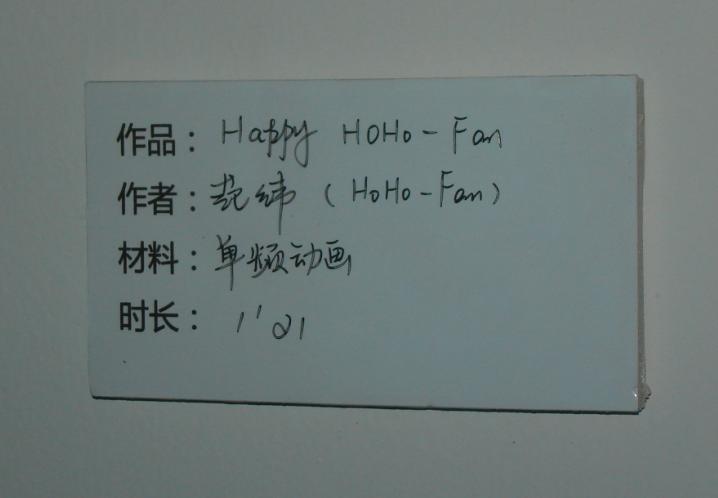 作品：Happy HOHo-Fan
作者：范纬（HoHo-Fan）
材料：单频动画
时长：1'21